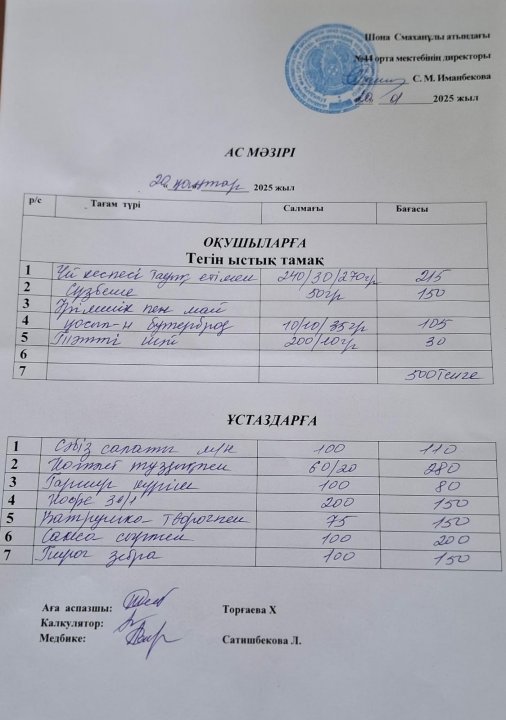 Шона Смаханұлы атындағы
№44 орта мектебінің директоры
С. М. Иманбекова
20 01 2025 жыл
АС МӘЗІРІ
20 қаңтар 2025 жыл
р/с Тағам түрі Салмағы Бағасы
ОҚУШЫЛАРҒА
Тегін ыстық тамақ
1 Үй кеспесі тауық етімен 240/30/270гр 215
2 Сүзбеше 50гр 150
3 Ірімшік пен май
4 қосып-н бутерброд 10/10/35гр 105
5 Тәтті шәй 200/10гр 30
6
7 500теңге
ҰСТАЗДАРҒА
1 Сәбіз салаты м/н 100 110
2 Котлет тұздықпен 60/20 280
3 Гарнир күріш 100 80
4 Кофе 3в1 200 150
5 Ватрушка творогпен 75 150
6 Самса етпен 100 200
7 Пирог зебра 100 150
Аға аспазшы: Торғаева Х
Калкулятор:
Медбике: Сатишбекова Л.